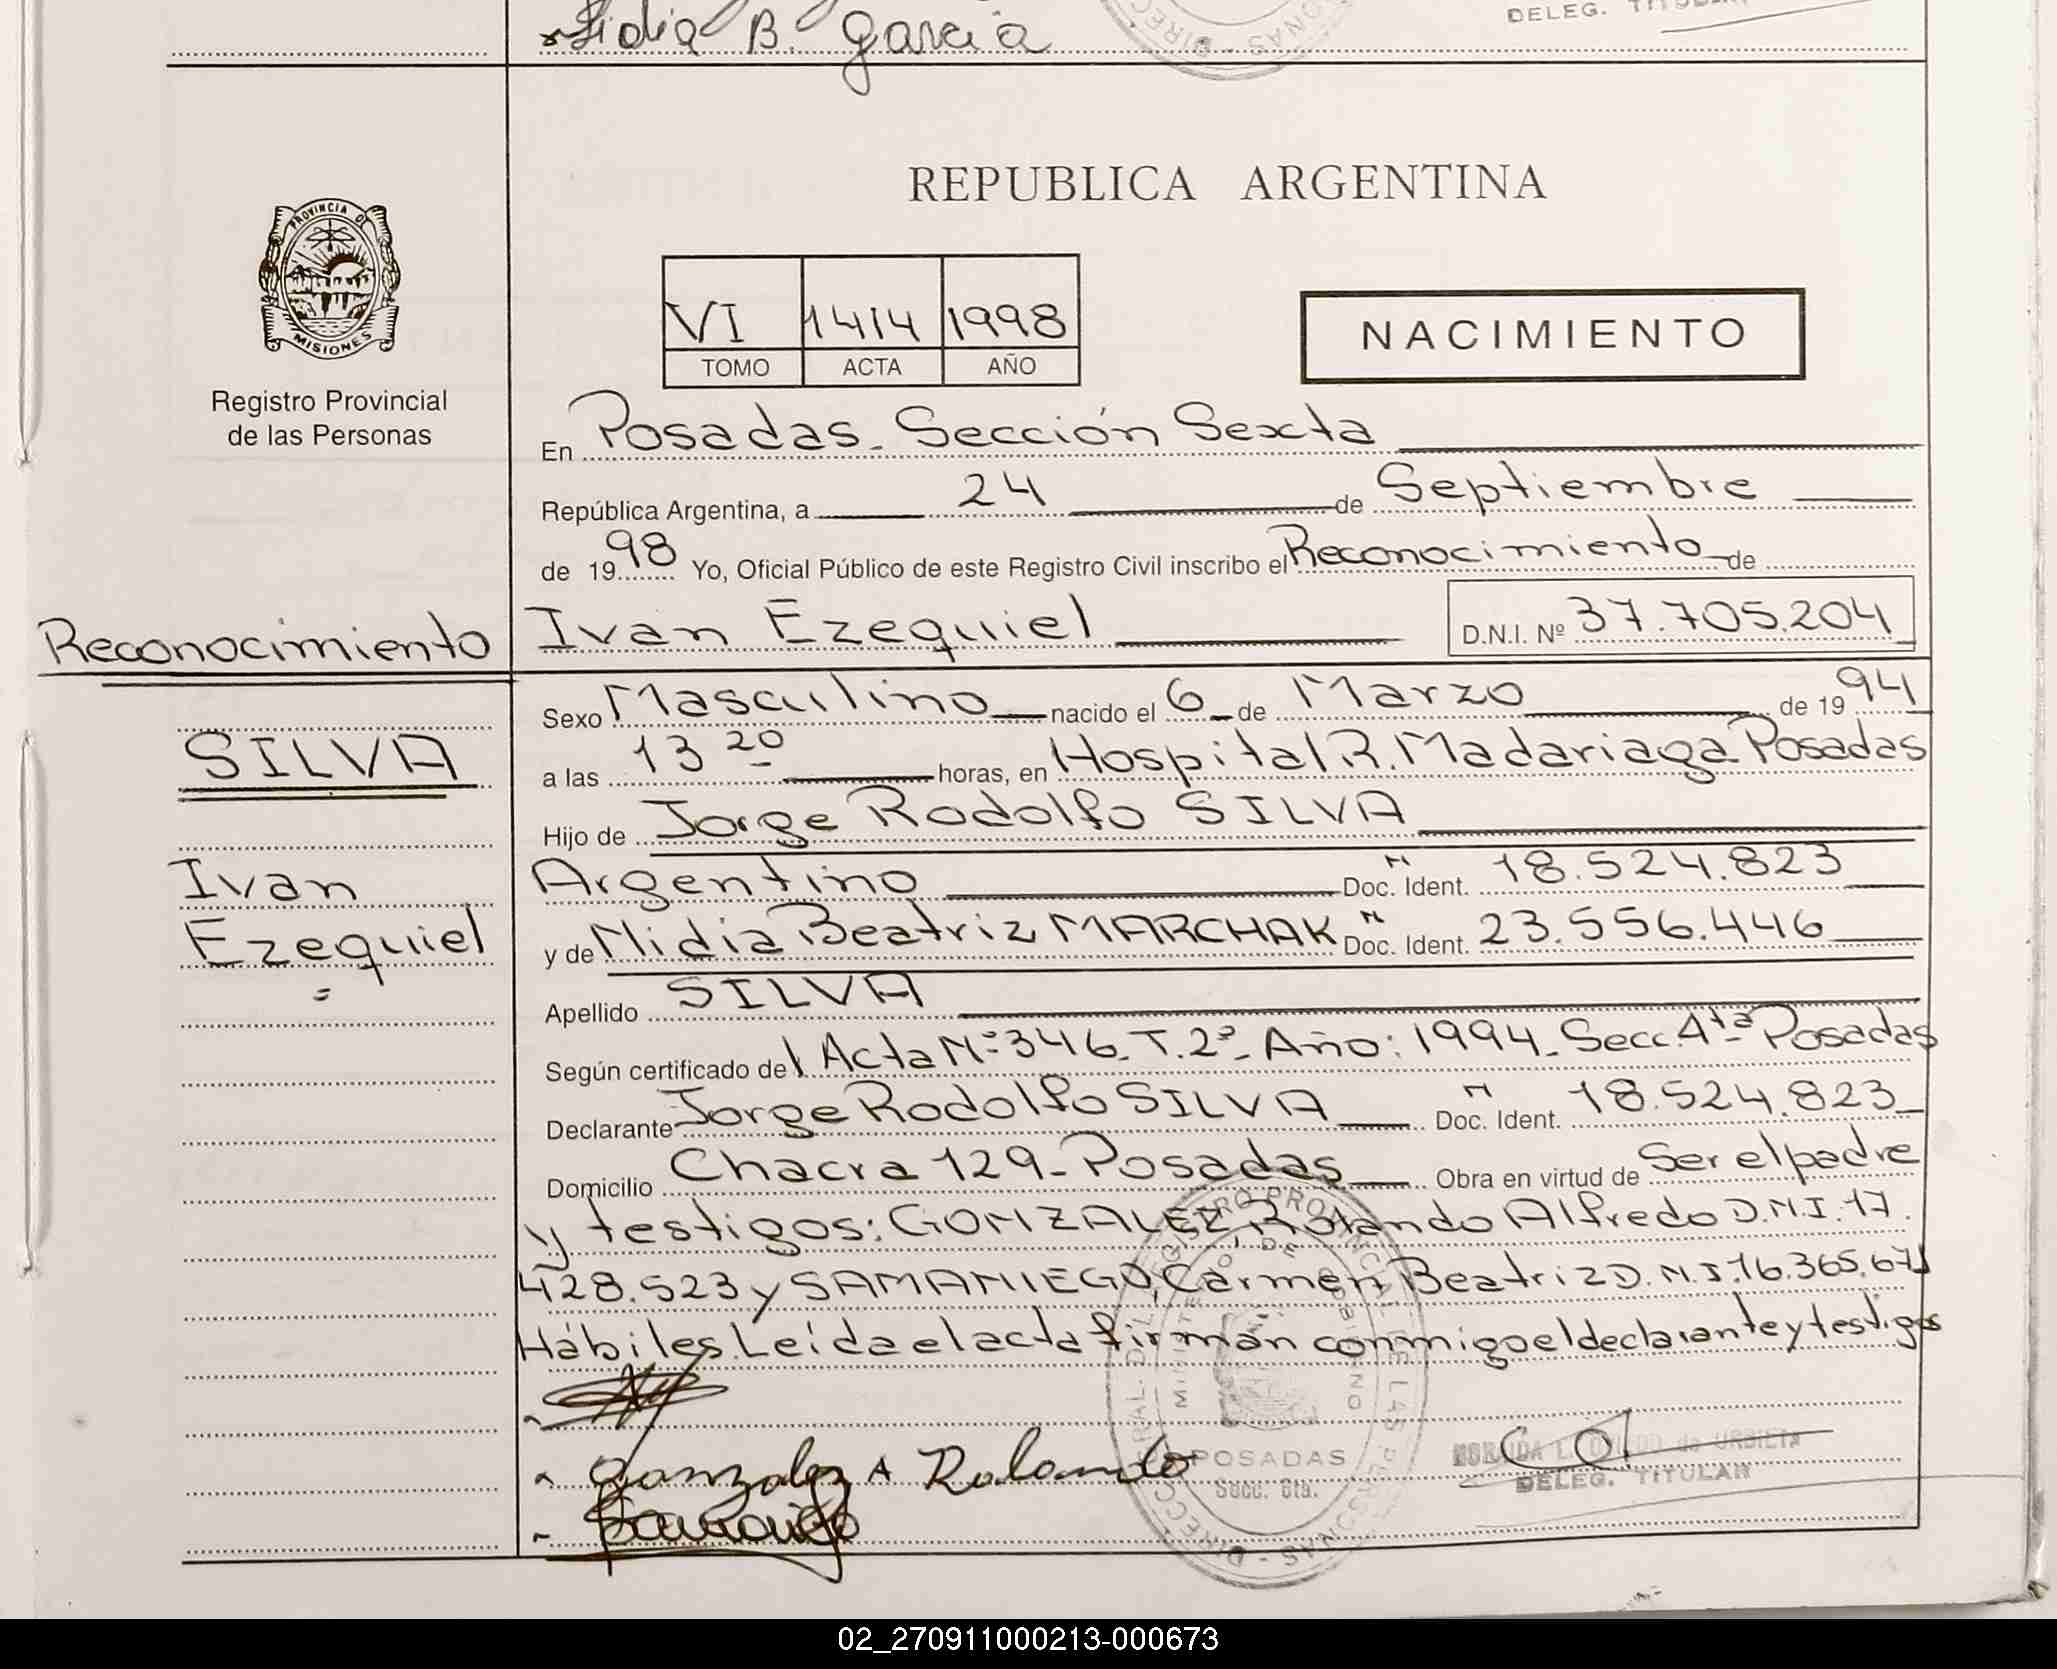 Lidia B. Garcia
DELEG. TITULAR
REPUBLICA ARGENTINA
PROVINCIA DE
MISIONES
Registro Provincial
de las Personas
VI 1414 1998
TOMO ACTA AÑO
NACIMIENTO
En Posadas. Sección Sexta
República Argentina, a 24 de Septiembre
de 1998 Yo, Oficial Público de este Registro Civil inscribo el Reconocimiento de
Reconocimiento
Ivan Ezequiel D.N.I. Nº 37.705.204
SILVA
Ivan
Ezequiel
Sexo Masculino nacido el 6 de Marzo de 1994
a las 13 20 horas, en Hospital R. Madariaga Posadas
Hijo de Jorge Rodolfo SILVA
Argentino Doc. Ident. N 18.524.823
y de Nidia Beatriz MARCHAK Doc. Ident. N 23.556.446
Apellido SILVA
Según certificado del Acta Nº 346. T. 2º. Año: 1994. Secc. 4ta Posadas
Declarante Jorge Rodolfo SILVA Doc. Ident. N 18.524.823
Domicilio Chacra 129-Posadas Obra en virtud de Ser el padre
y testigos: GONZALEZ, Rolando Alfredo D.N.I. 17.
428.523 y SAMANIEGO, Carmen Beatriz D.N.I. 16.365.671
Hábiles. Leída el acta firman conmigo el declarante y testigos
Gonzalez A Rolando
POSADAS
Secc. 6ta.
DELEG. TITULAR
02_270911000213-000673